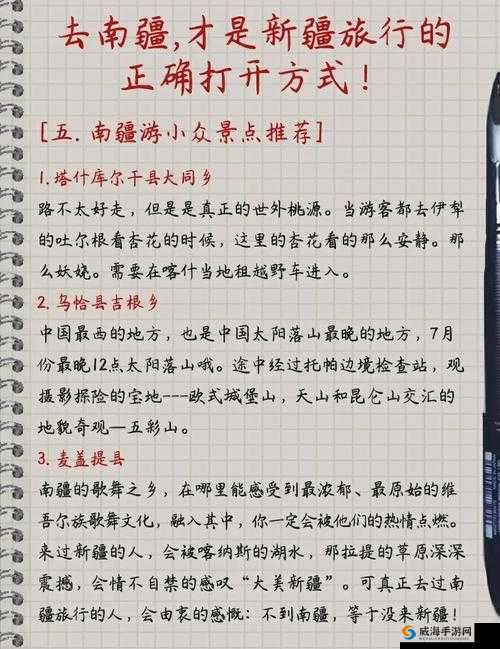 去南疆,才是新疆旅行的
正确打开方式!
[五. 南疆游小众景点推荐]
1. 塔什库尔干县大同乡
路不太好走，但是是真正的世外桃源。当游客都去伊犁
的吐尔根看杏花的时候，这里的杏花看的那么安静。那
么妖娆。需要在喀什当地租越野车进入。
2. 乌恰县吉根乡
中国最西的地方，也是中国太阳落山最晚的地方，7月
份最晚12点太阳落山哦。途中经过托帕边境检查站，观
摄影探险的宝地---欧式城堡山，天山和昆仑山交汇的
地貌奇观—五彩山。
3. 麦盖提县
南疆的歌舞之乡，在哪里能感受到最浓郁、最原始的维
吾尔族歌舞文化，融入其中，你一定会被他们的热情点燃。
来过新疆的人，会被喀纳斯的湖水，那拉提的草原深深
震撼，会情不自禁的感叹“大美新疆”。可真正去过南
疆旅行的人，会由衷的感慨：不到南疆，等于没来新疆！
威海手游网